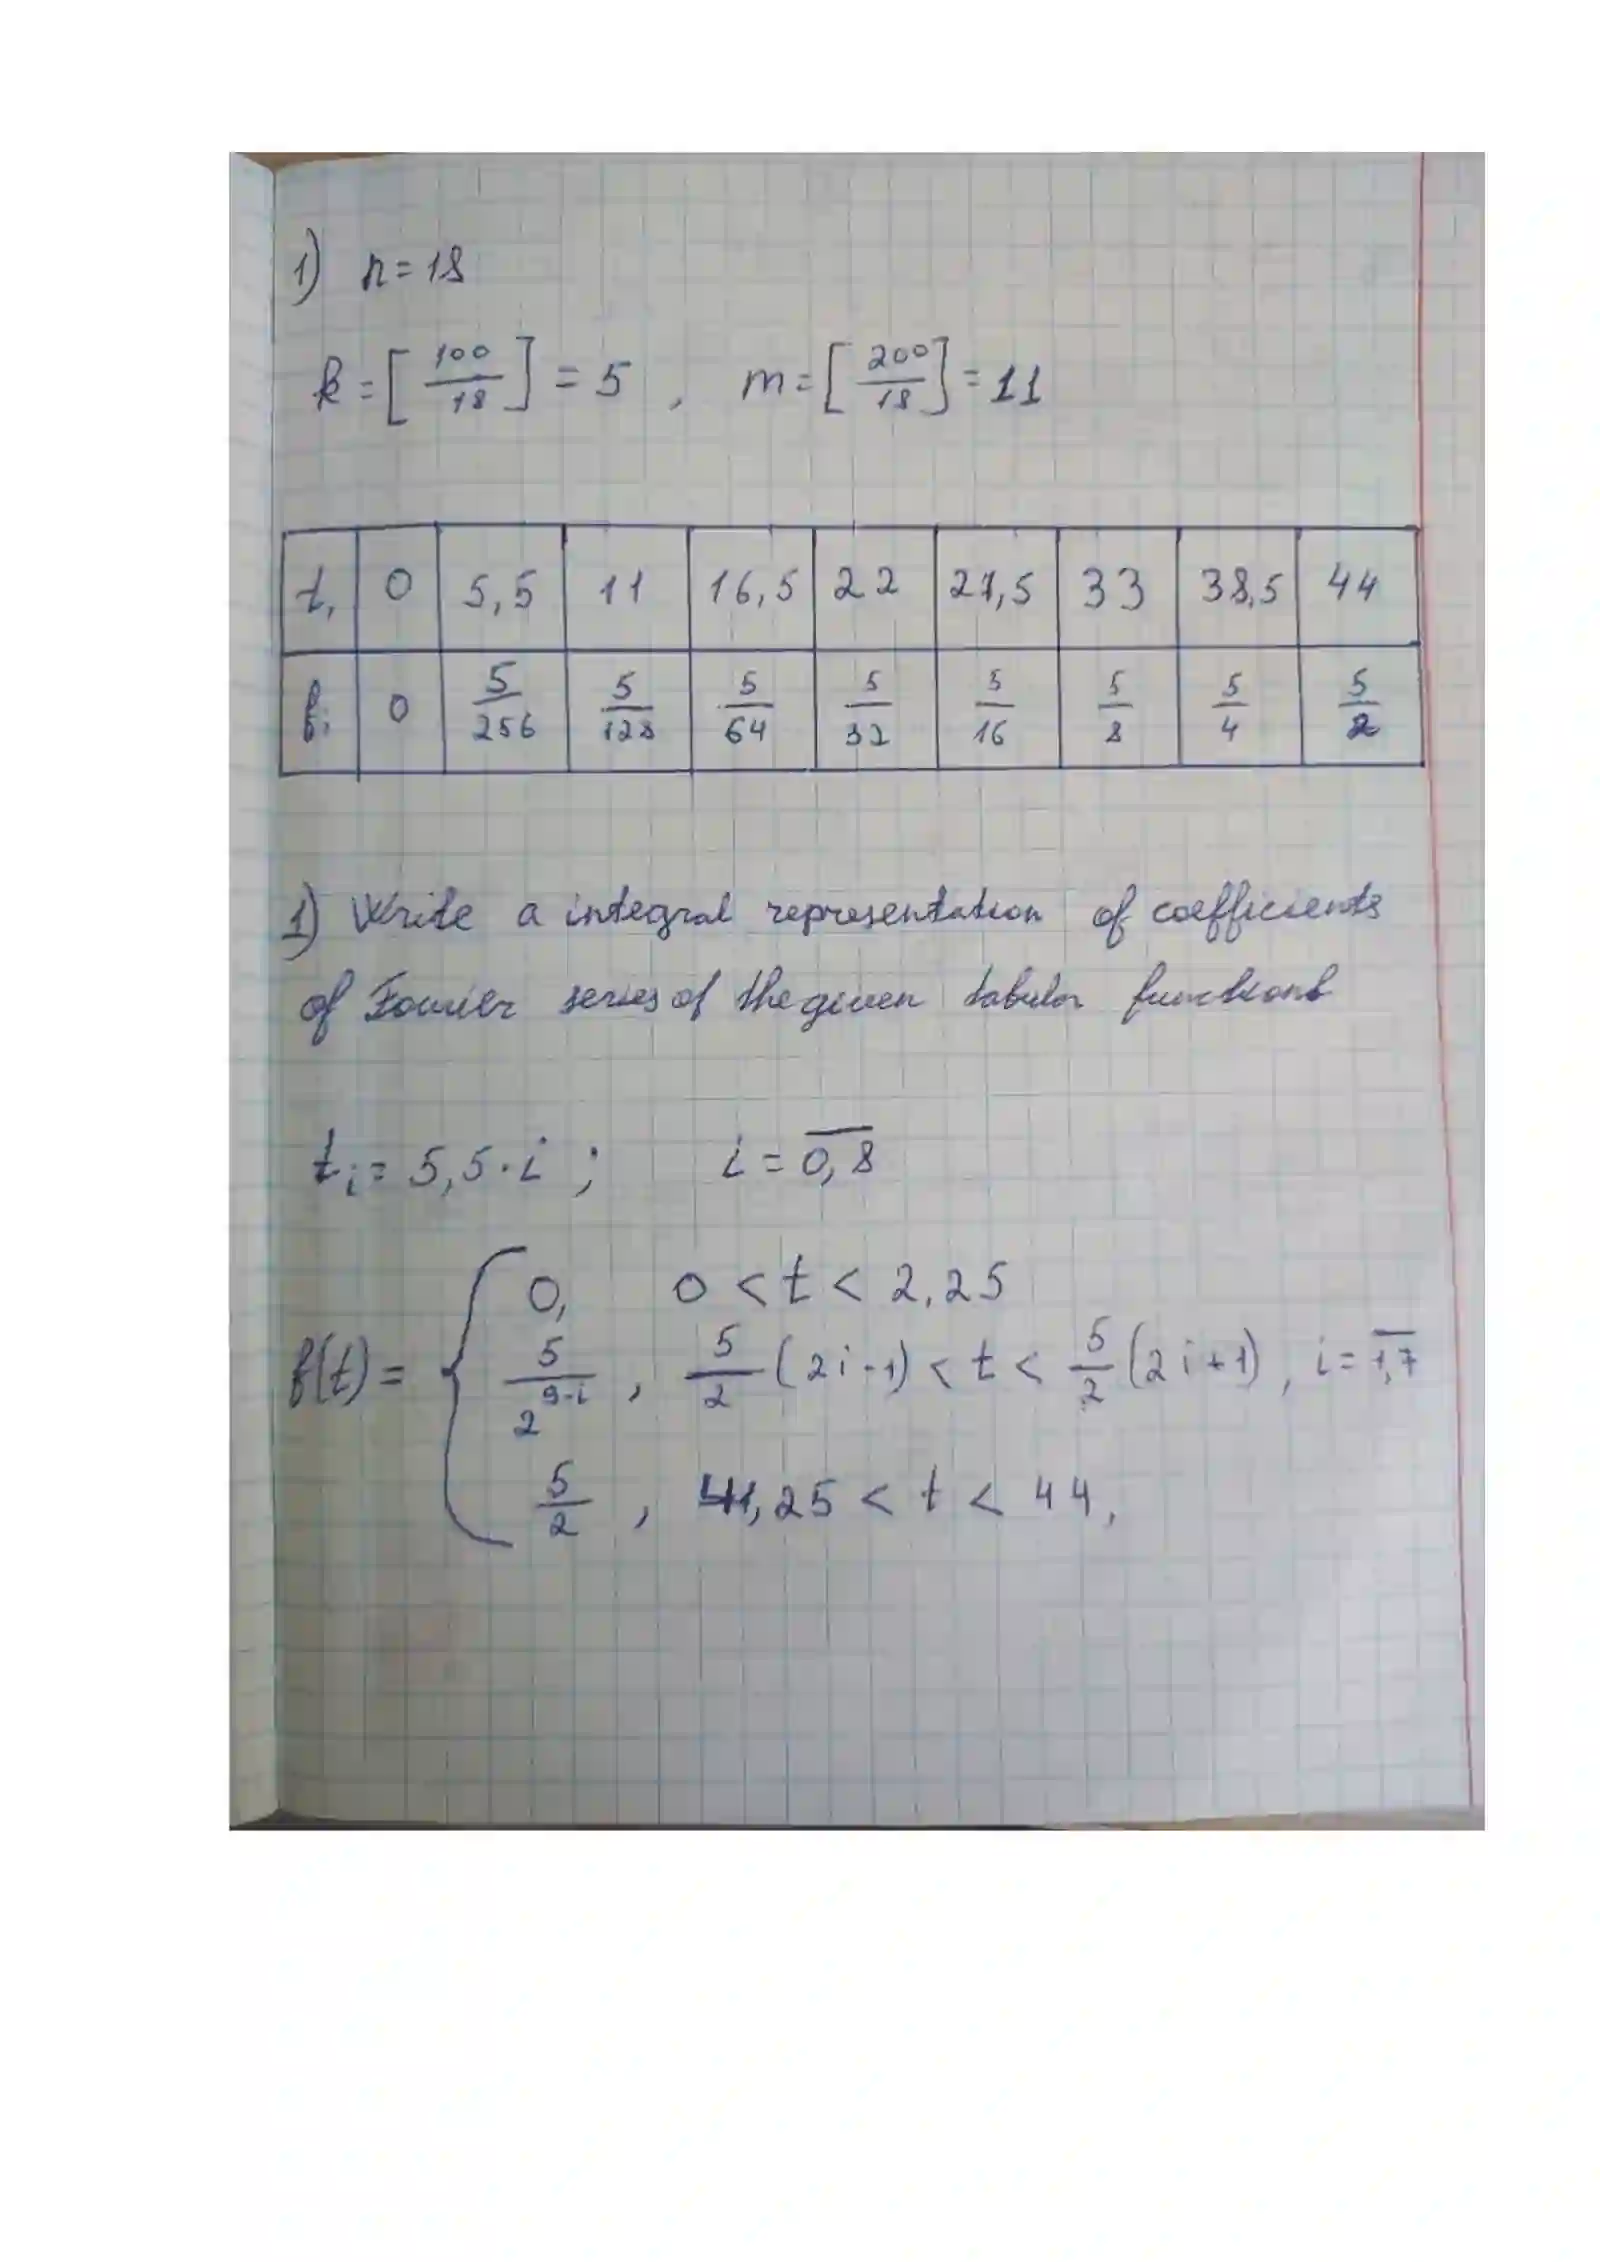 1) n=18
k=[100/18]=5, m=[200/18]=11
tᵢ 0 5,5 11 16,5 22 27,5 33 38,5 44
fᵢ 0 5/256 5/128 5/64 5/32 5/16 5/8 5/4 5/2
1) Write a integral representation of coefficients
of Fourier series of the given tabular functions
tᵢ = 5,5·i ; i = 0,8
0, 0 < t < 2,25
f(t) = { 5/2^(9-i), 5/2 (2i-1) < t < 5/2 (2i+1), i = 1,7
5/2, 41,25 < t < 44,